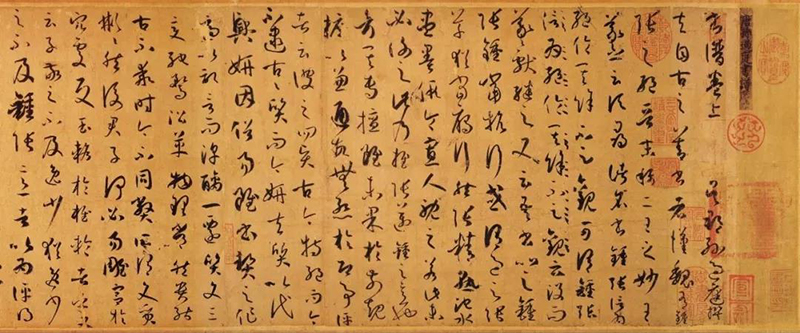 書譜卷上　吳郡孫過庭撰
夫自古之善書者漢魏有鍾
張之絕晉末稱二王之妙王
羲之云頃尋諸名書鍾張信為
絕倫其餘不足觀可謂鍾張
信為絕倫其餘不足觀云沒而
羲獻繼之又云吾書比之鍾
張鍾當抗行或謂過之張
草猶當鴈行然張精熟池水
盡墨假令寡人耽之若此未
必謝之此乃推張邁鍾之意也
考其專擅雖未果於前規
摭以兼通故無慙於即事評
者云彼之四賢古今特絕而今
不逮古古質而今妍夫質以代
興妍因俗易雖書契之作
適以記言而淳醨一遷質文三
變馳騖沿革物理常然貴能
古不乖時今不同弊所謂文質
彬彬然後君子何必易雕宮於
穴處反玉輅於椎輪者乎又
云子敬之不及逸少猶逸少
之不及鍾張意者以為評得